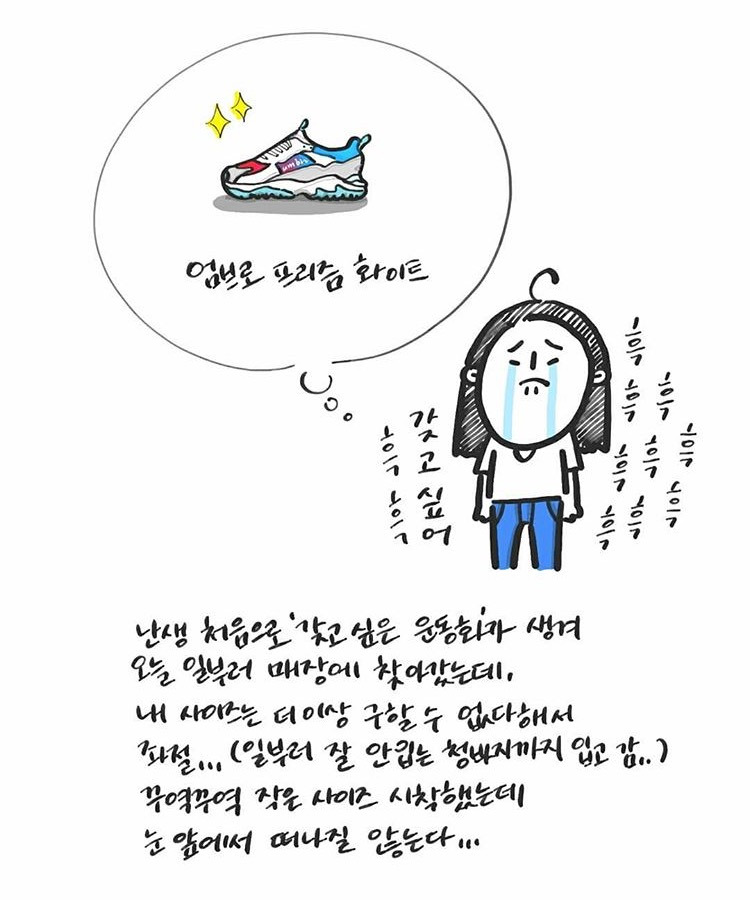 umbro
엄브로 프리즘 화이트
갖고싶어
흑
흑
흑
흑
흑
흑
흑
흑
흑
흑
흑
난생 처음으로 '갖고 싶은 운동화'가 생겨
오늘 일부러 매장에 찾아갔는데.
내 사이즈는 더이상 구할 수 없다해서
좌절... (일부러 잘 안입는 청바지까지 입고 감..)
꾸역꾸역 작은 사이즈 시착했는데
눈 앞에서 떠나질 않는다...